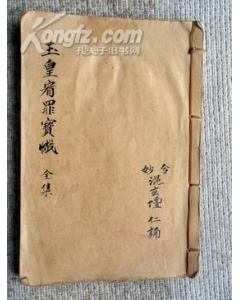 Kongfz.com
孔夫子旧书网
玉皇宥罪寶懺
全集
妙 令
混玄壇 仁誦